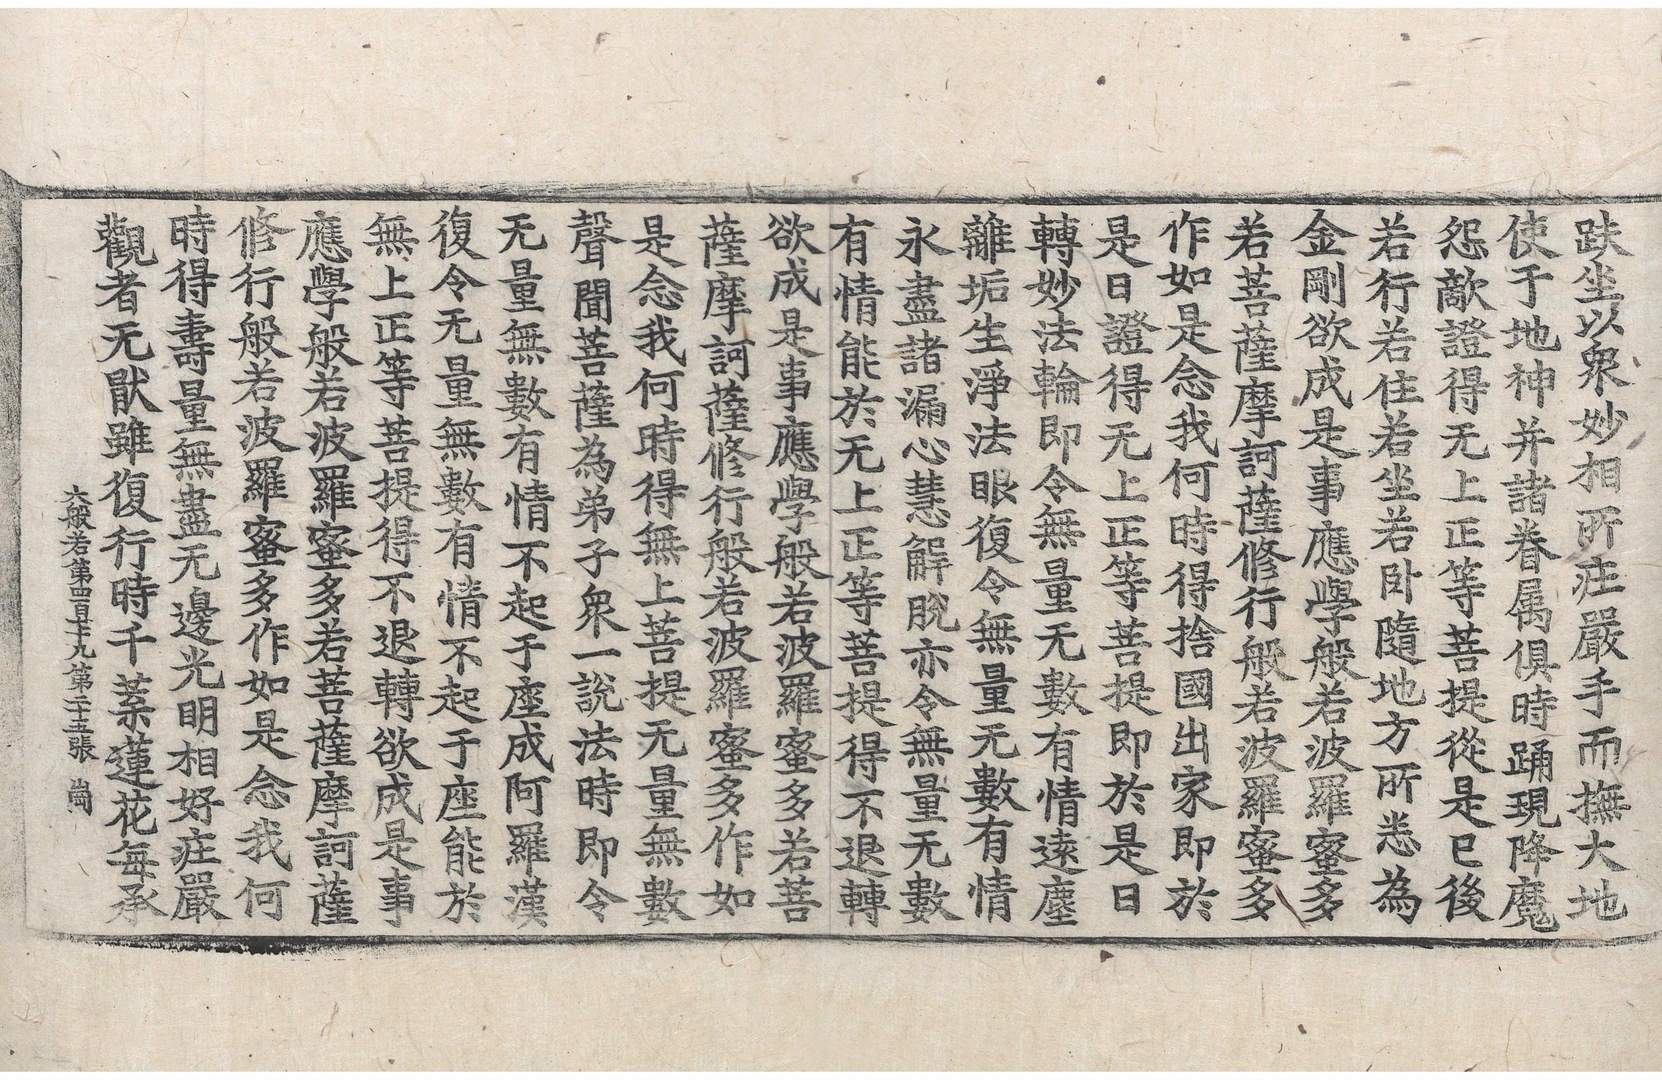 趺坐以衆妙相所莊嚴手而撫大地
使于地神并諸眷属俱時踊現降魔
怨敵證得无上正等菩提從是已後
若行若住若坐若卧隨地方所悉為
金剛欲成是事應學般若波羅蜜多
若菩薩摩訶薩修行般若波羅蜜多
作如是念我何時得捨國出家即於
是日證得无上正等菩提即於是日
轉妙法輪即令無量无數有情遠塵
離垢生淨法眼復令無量无數有情
永盡諸漏心慧解脫亦令無量无數
有情能於无上正等菩提得不退轉
欲成是事應學般若波羅蜜多若菩
薩摩訶薩修行般若波羅蜜多作如
是念我何時得無上菩提无量無數
聲聞菩薩為弟子衆一說法時即令
无量無數有情不起于座成阿羅漢
復令无量無數有情不起于座能於
無上正等菩提得不退轉欲成是事
應學般若波羅蜜多若菩薩摩訶薩
修行般若波羅蜜多作如是念我何
時得壽量無盡无邊光明相好莊嚴
觀者无猒雖復行時千葉蓮花每承
般若第四百十九第二十五張